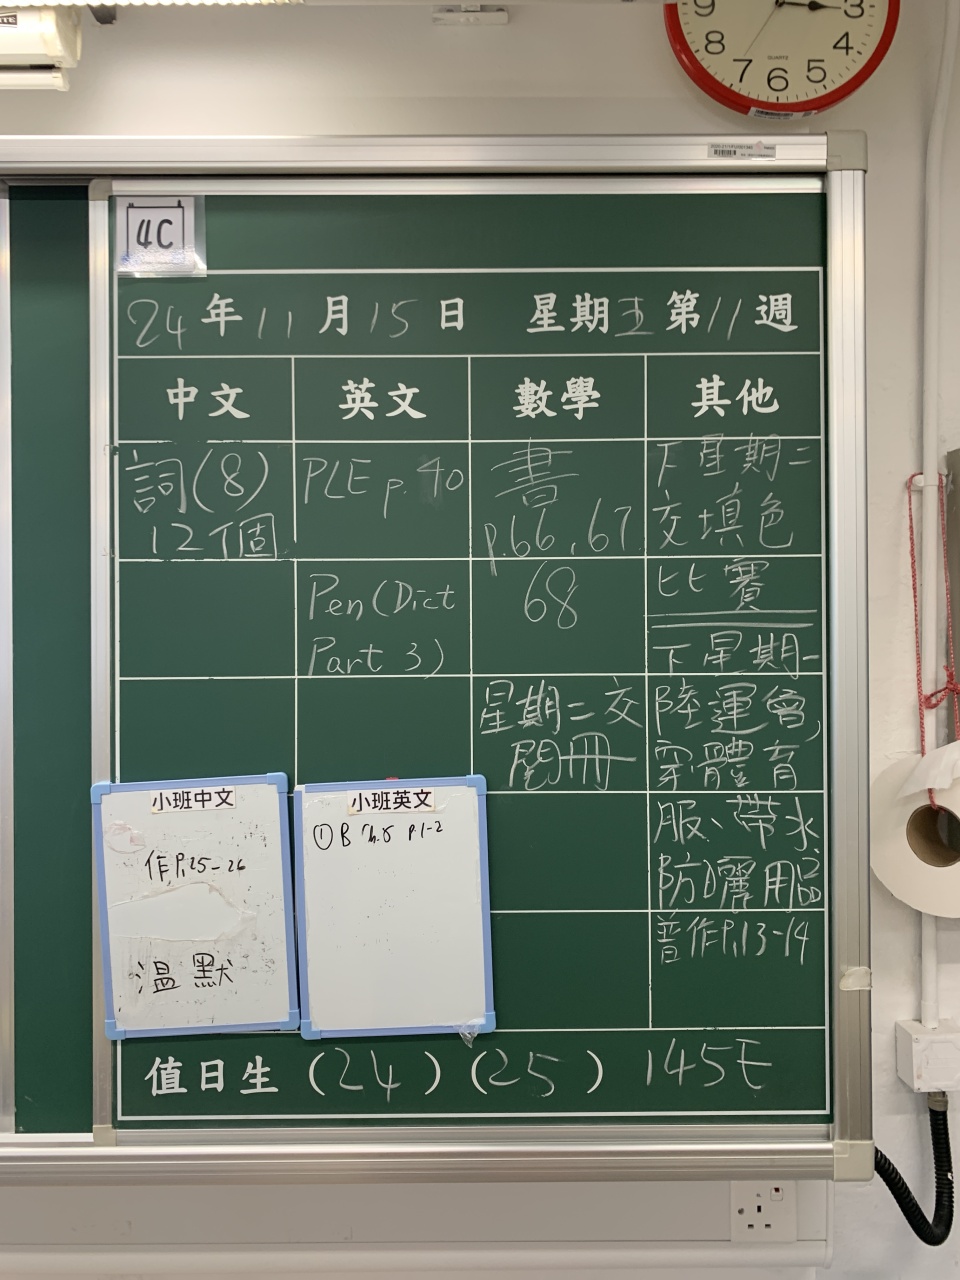 9
3
8
4
7
5
6
QUARTZ
4C
24年11月15日 星期五 第11週
中文 英文 數學 其他
詞(8)
12個
PLE p. 40
Pen(Dict
Part 3)
書
p.66, 67
68
星期二交
閱冊
下星期二
交填色
比賽
下星期一
陸運會,
穿體育
服、帶水
防曬用品
普作P.13-14
小班中文
作P.25-26
溫默
小班英文
① B p.1-2
值日生 (24) (25) 145E